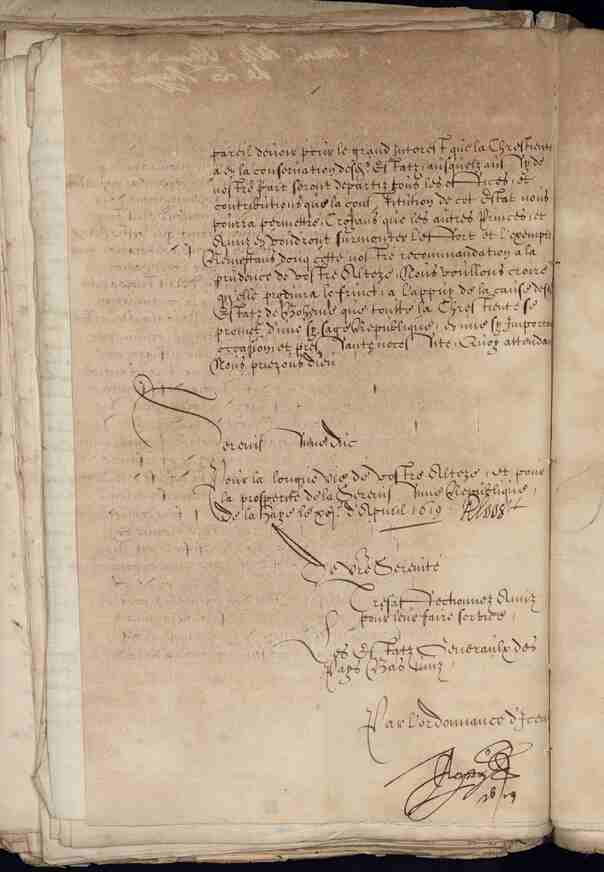 pareil devoir pour le grand interest que la Chrestienté
a en la conservation desd. Estatz, ausquelz aussy de
nostre part seront departiz tous les offices, et
contributions que la constitution de cet Estat nous
pourra permettre, Croyans que les autres Princes, et
Amiz en voudront surmonter l'effort et l'exemple
Remettans donq cette nostre recommandation a la
prudence de vostre Alteze, Nous voullons croire
qu'elle produira le fruict, a l'appuy de la cause desd.
Estatz de Boheme que toutte la Chrestienté se
promet d'une sy sage Republique, en une sy importante
occasion, et pressante necessité, Quoy attendant
Nous prierons Dieu
Serenissime Duc
Pour la longue vie de vostre Alteze, et pour
la prosperité de la Serenissime Republique,
De la Haye le d'Apvril 1619
De vre Serenité
Tresaffectionnez Amiz
pour leur faire service,
Les Estatz Generaulx des
Pays Bas Uniz,
Par l'ordonnance d'Iceux
1619